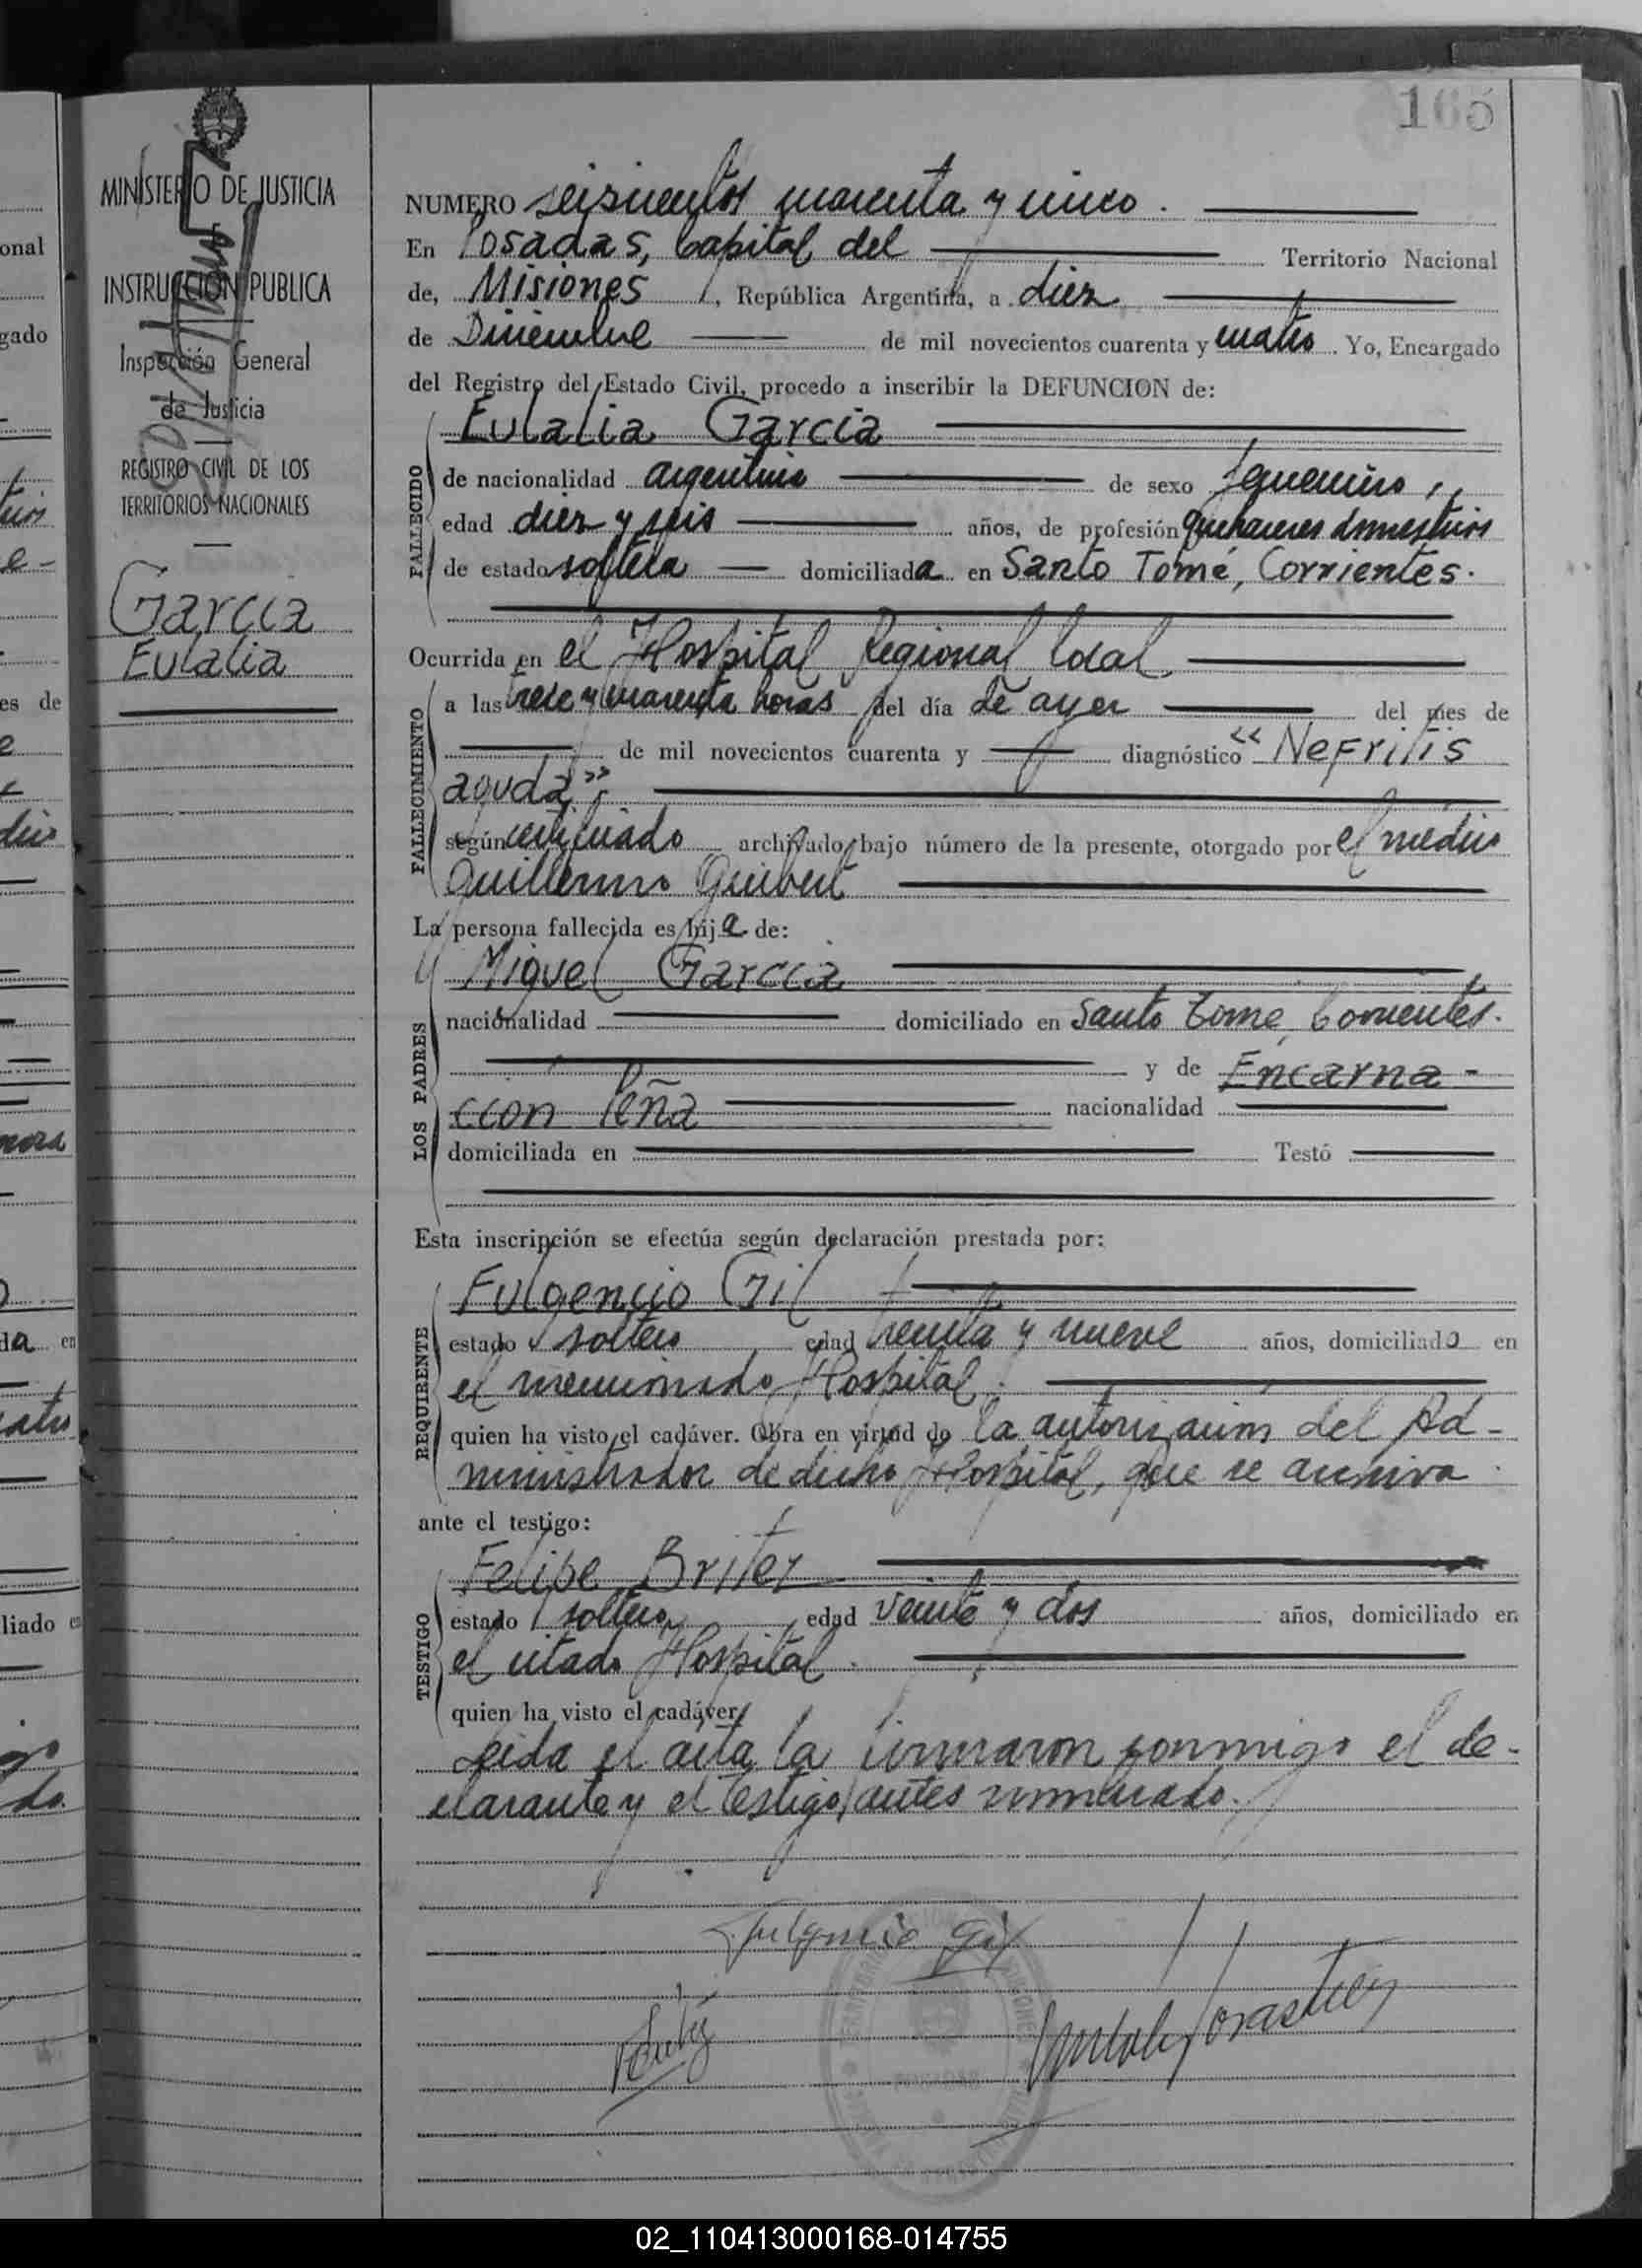 165
MINISTERIO DE JUSTICIA
INSTRUCCION PUBLICA
Inspección General
de Justicia
REGISTRO CIVIL DE LOS
TERRITORIOS NACIONALES
García
Eulalia
NUMERO seiscientos cuarenta y cinco.
En Posadas, Capital del Territorio Nacional
de, Misiones, República Argentina, a diez
de Diciembre de mil novecientos cuarenta y cuatro. Yo, Encargado
del Registro del Estado Civil, procedo a inscribir la DEFUNCION de:
Eulalia García
FALLECIDO
de nacionalidad argentina de sexo femenino,
edad diez y seis años, de profesión quehaceres domesticos
de estado soltera domiciliada en Santo Tomé, Corrientes.
Ocurrida en el Hospital Regional local
FALLECIMIENTO
a las trece y cuarenta horas del día de ayer del mes de
de mil novecientos cuarenta y diagnóstico "Nefritis
aguda"
según certificado archivado bajo número de la presente, otorgado por el médico
Guillermo
La persona fallecida es hija de:
LOS PADRES
Miguel García
nacionalidad domiciliado en Santo Tomé, Corrientes.
y de Encarna-
ción Peña nacionalidad
domiciliada en Testó
Esta inscripción se efectúa según declaración prestada por:
REQUIRENTE
Fulgencio Gil
estado soltero edad treinta y nueve años, domiciliado en
el mencionado Hospital.
quien ha visto el cadáver. Obra en virtud de la autorización del Ad-
ministrador de dicho Hospital, que se archiva.
ante el testigo:
TESTIGO
Felipe Britez
estado soltero edad veinte y dos años, domiciliado en
el citado Hospital.
quien ha visto el cadáver.
Leida el acta, la firmaron conmigo el de-
clarante y el testigo antes nombrado.
Fulgencio Gil
02_110413000168-014755